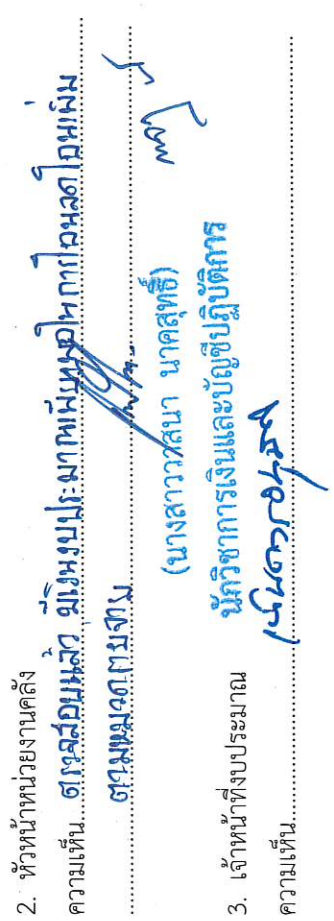 2. หัวหน้าหน่วยงานคลัง
ความเห็น....ตรวจสอบแล้ว มีเงินงบประมาณเพียงพอในการโอนลดโอนเพิ่ม
ตามหมวดรายจ่าย
(นางสาววาสนา นาคสุทธิ์)
นักวิชาการเงินและบัญชีปฏิบัติการ
3. เจ้าหน้าที่งบประมาณ
ความเห็น....เห็นควรอนุมัติ